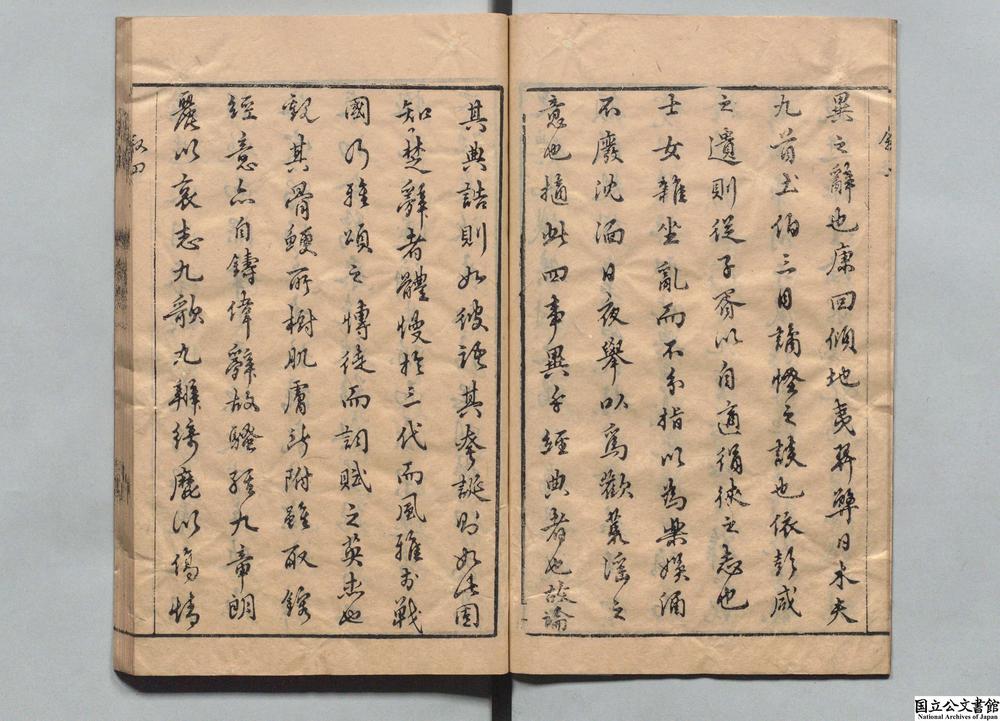 異之辭也康回傾地夷羿斃日木夫
九首土伯三目譎怪之談也依彭咸
之遺則從子胥以自適狷狹之志也
士女雜坐亂而不分指以為樂娛酒
不廢沈湎日夜舉以為歡荒淫之
意也摘此四事異乎經典者也故論
其典誥則如彼語其夸誕則如此固
知楚辭者體慢於三代而風雅於戰
國乃雅頌之博徒而詞賦之英杰也
觀其骨鯁所樹肌膚所附雖取鎔
經意亦自鑄偉辭故騷經九章朗
麗以哀志九歌九辯綺靡以傷情
敘四
国立公文書館
National Archives of Japan